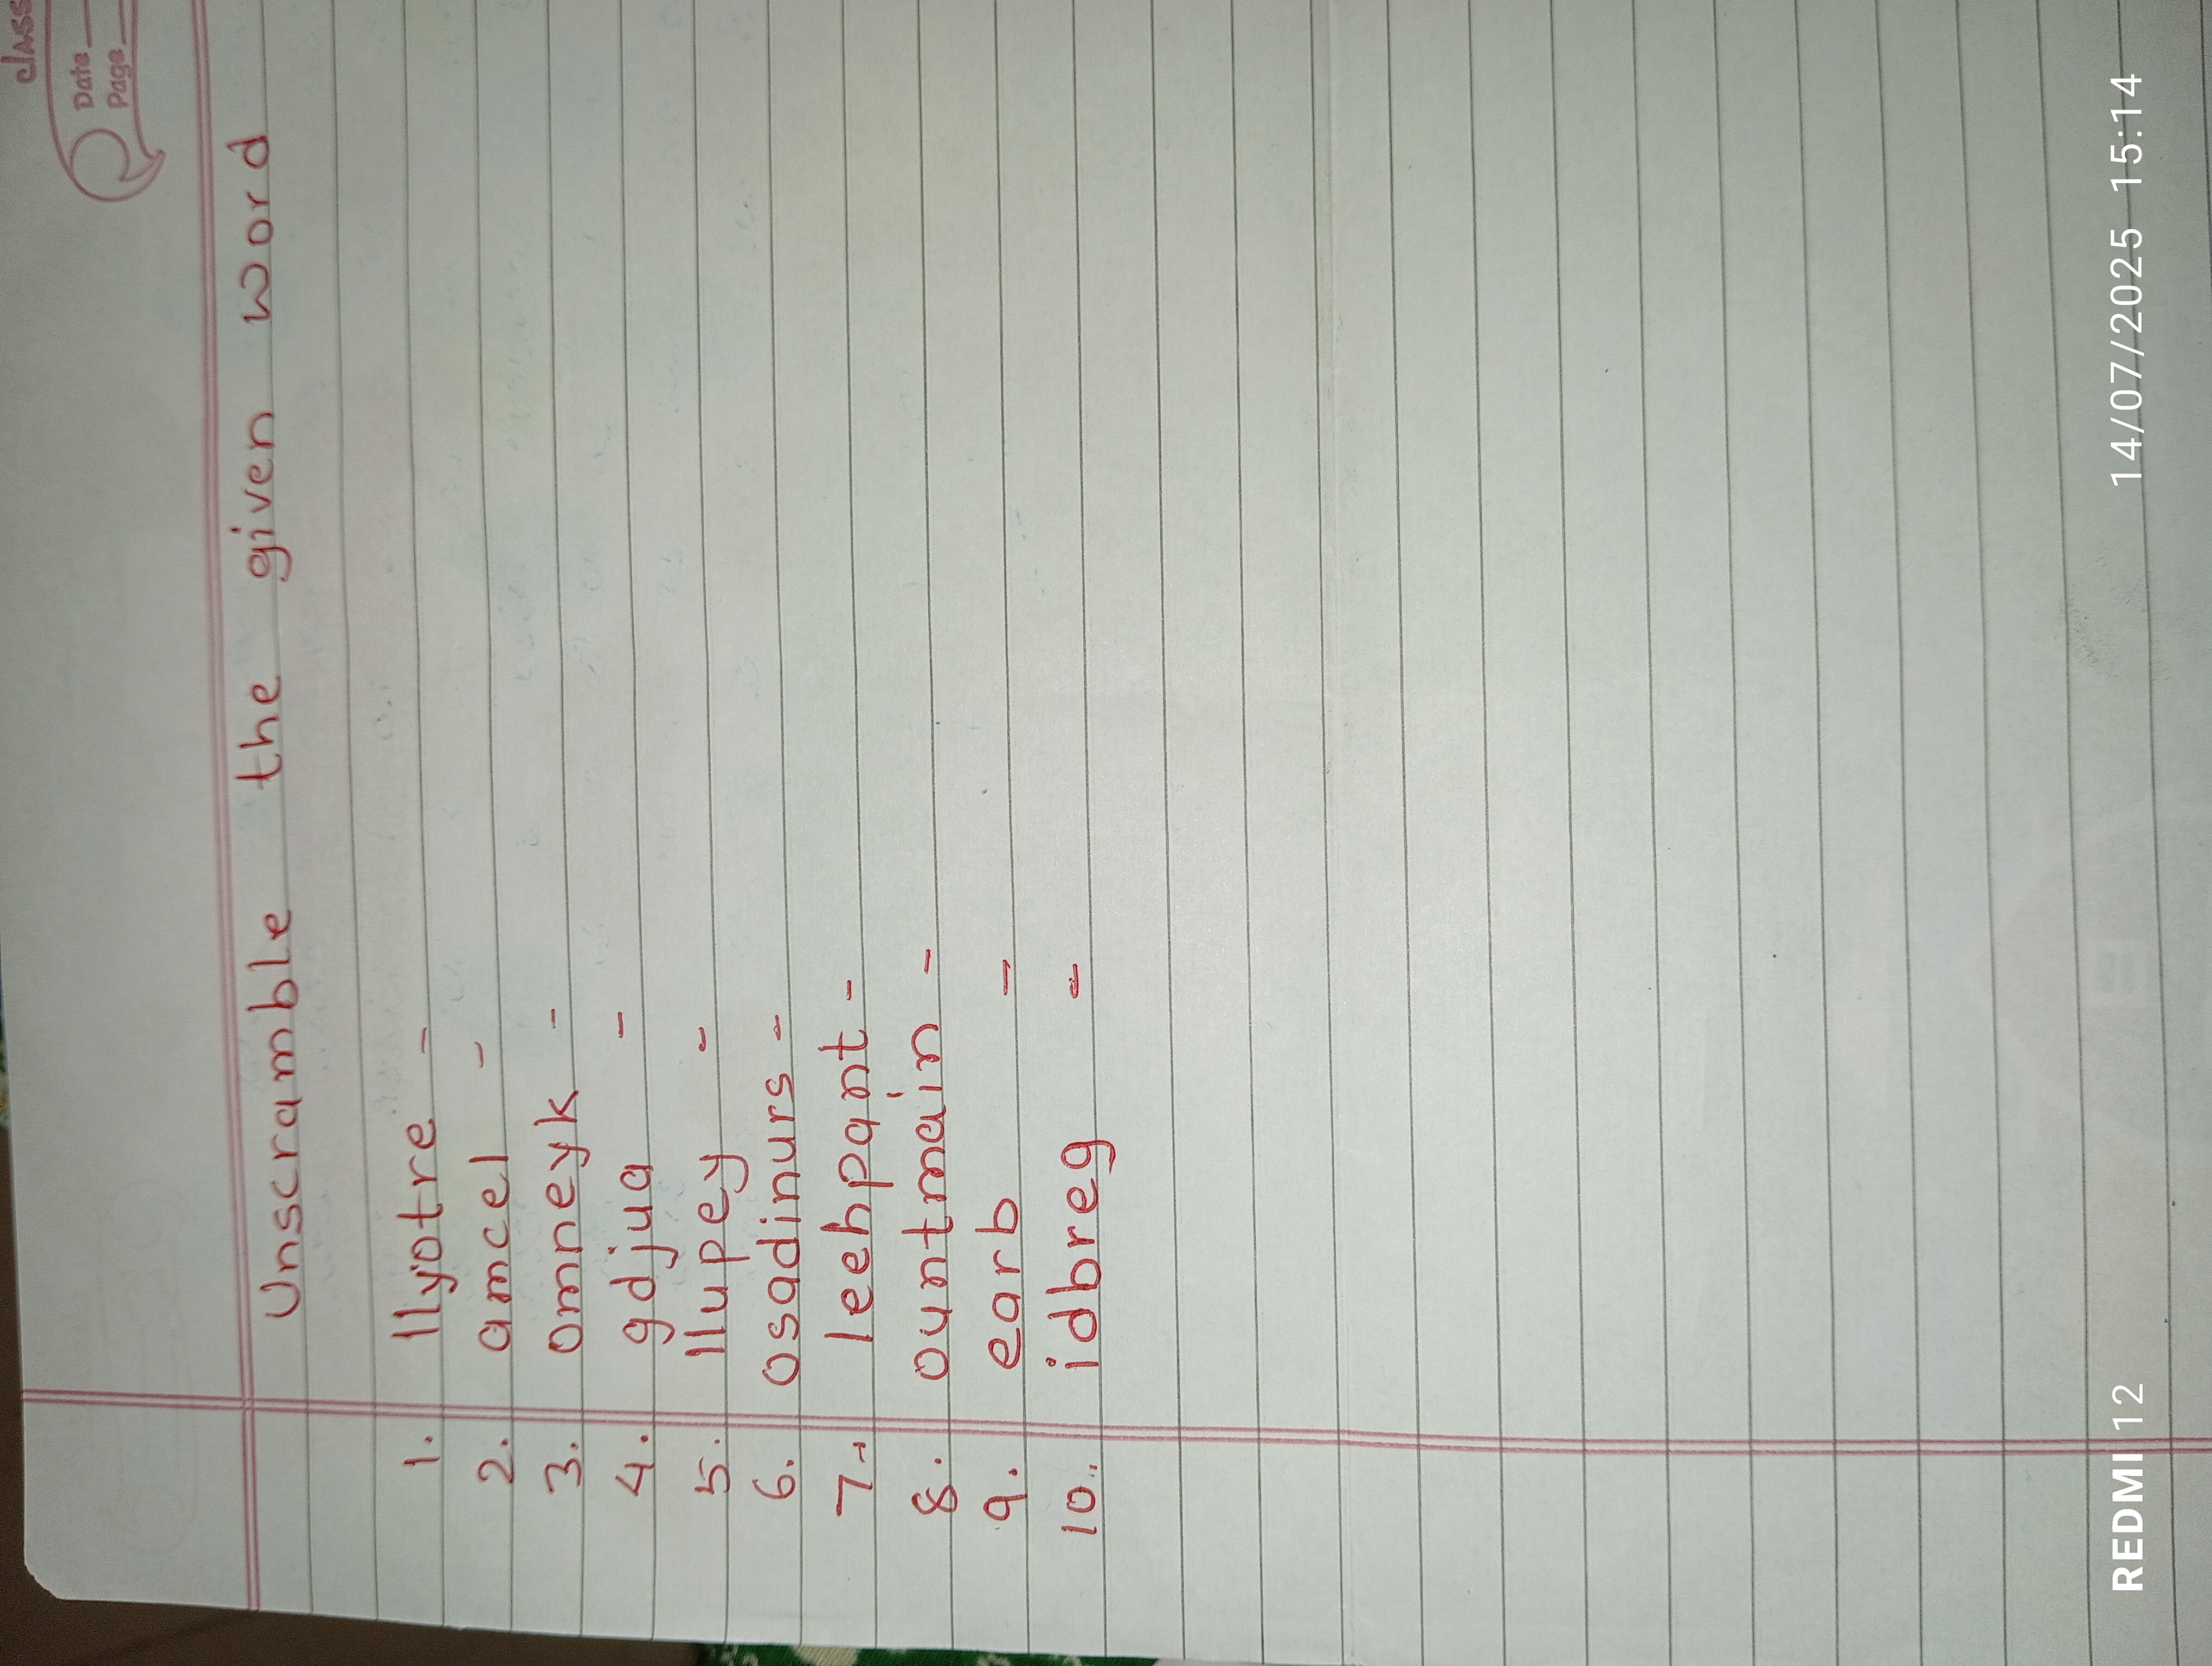 class
Date
Page
Unscramble the given word
1. llyotre -
2. amcel -
3. omneyk -
4. gdjua -
5. llupey -
6. osadinurs -
7. leehpant -
8. ountmain -
9. earb -
10. idbreg -
REDMI 12
14/07/2025 15:14